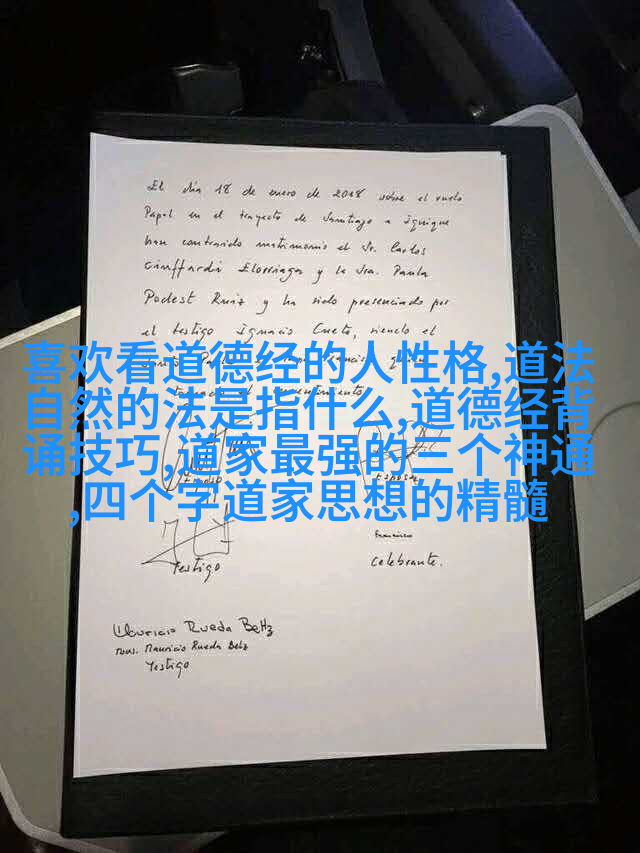 El día 18 de enero de 2018 sobre el vuelo
Papal en el trayecto de Santiago a Iquique
han contraido matrimonio el Sr. Carlos
Ciuffardi Elorriaga y la Sra. Paula
Podest Ruiz y ha sido presenciado por
el testigo Ignacio Cueto, siendo el
喜欢看道德经的人性格,道法
自然的法是指什么,道德经背
诵技巧,道家最强的三个神通
,四个字道家思想的精髓
Esposo
Esposa
Testigo
Franciscus
Celebrante.
Mauricio Rueda Beltz
Mons. Mauricio Rueda Beltz
Testigo